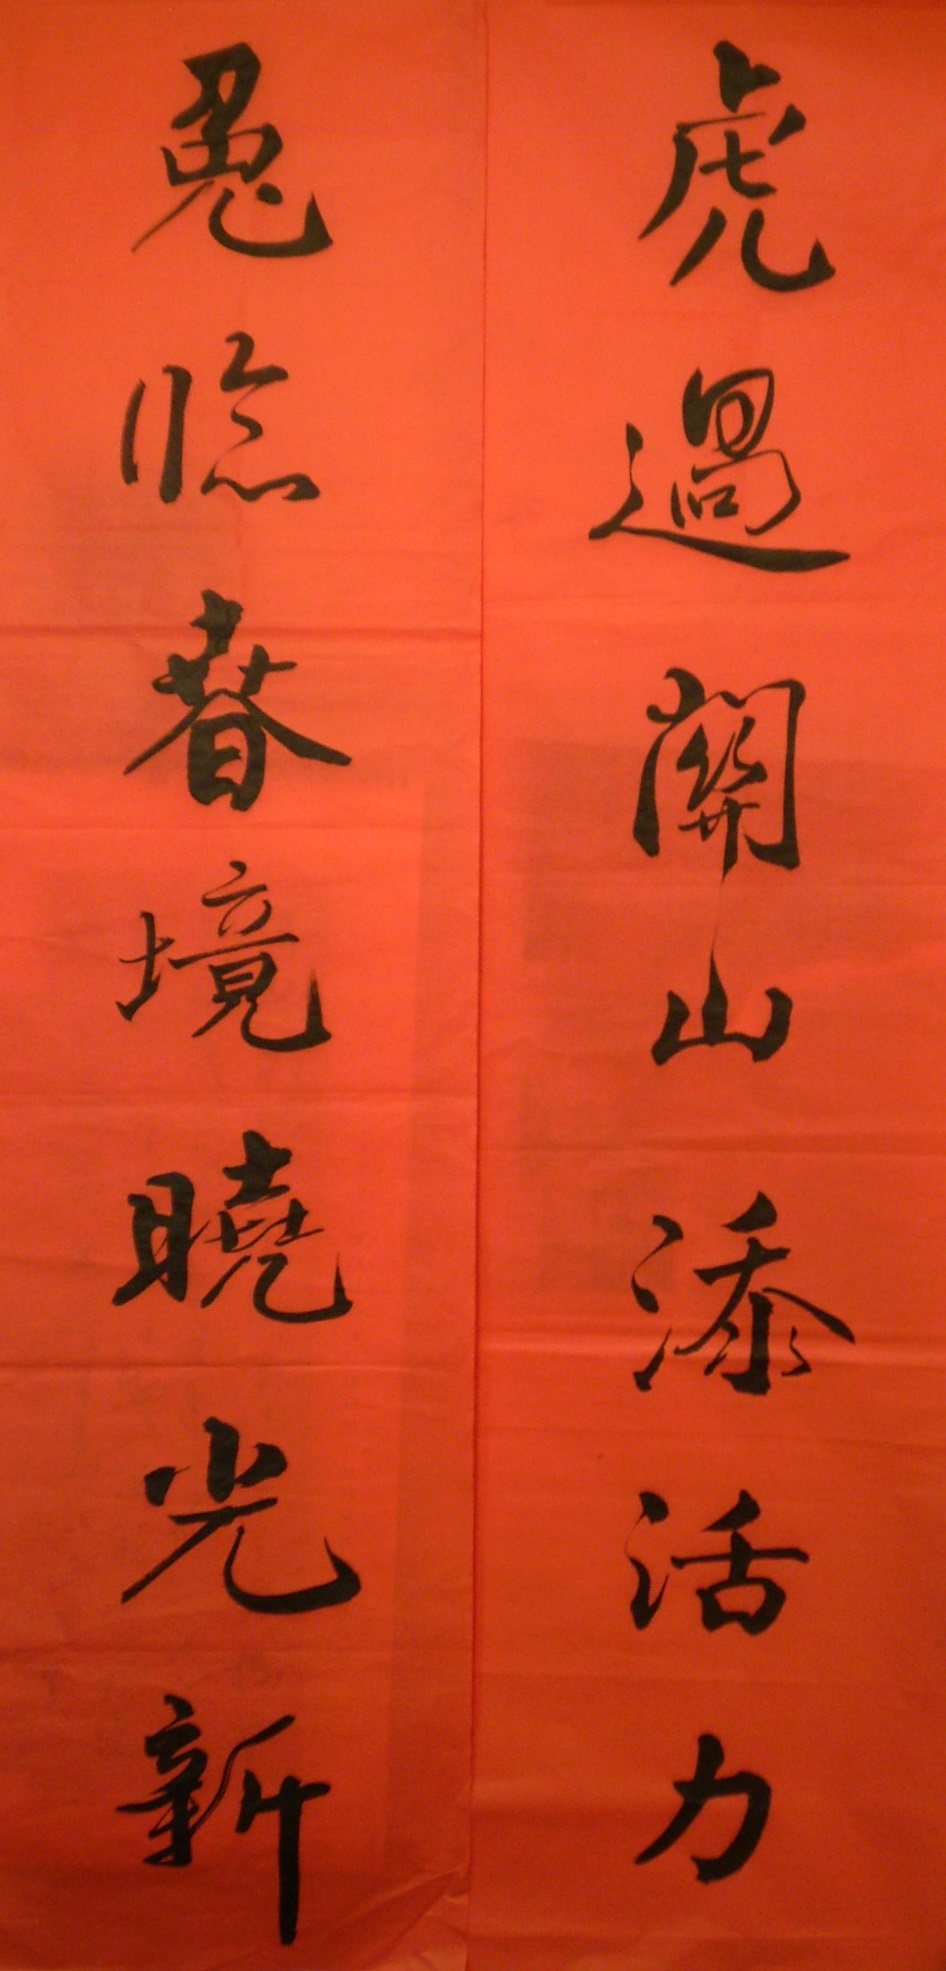 虎過關山添活力
兔臨春境曉光新